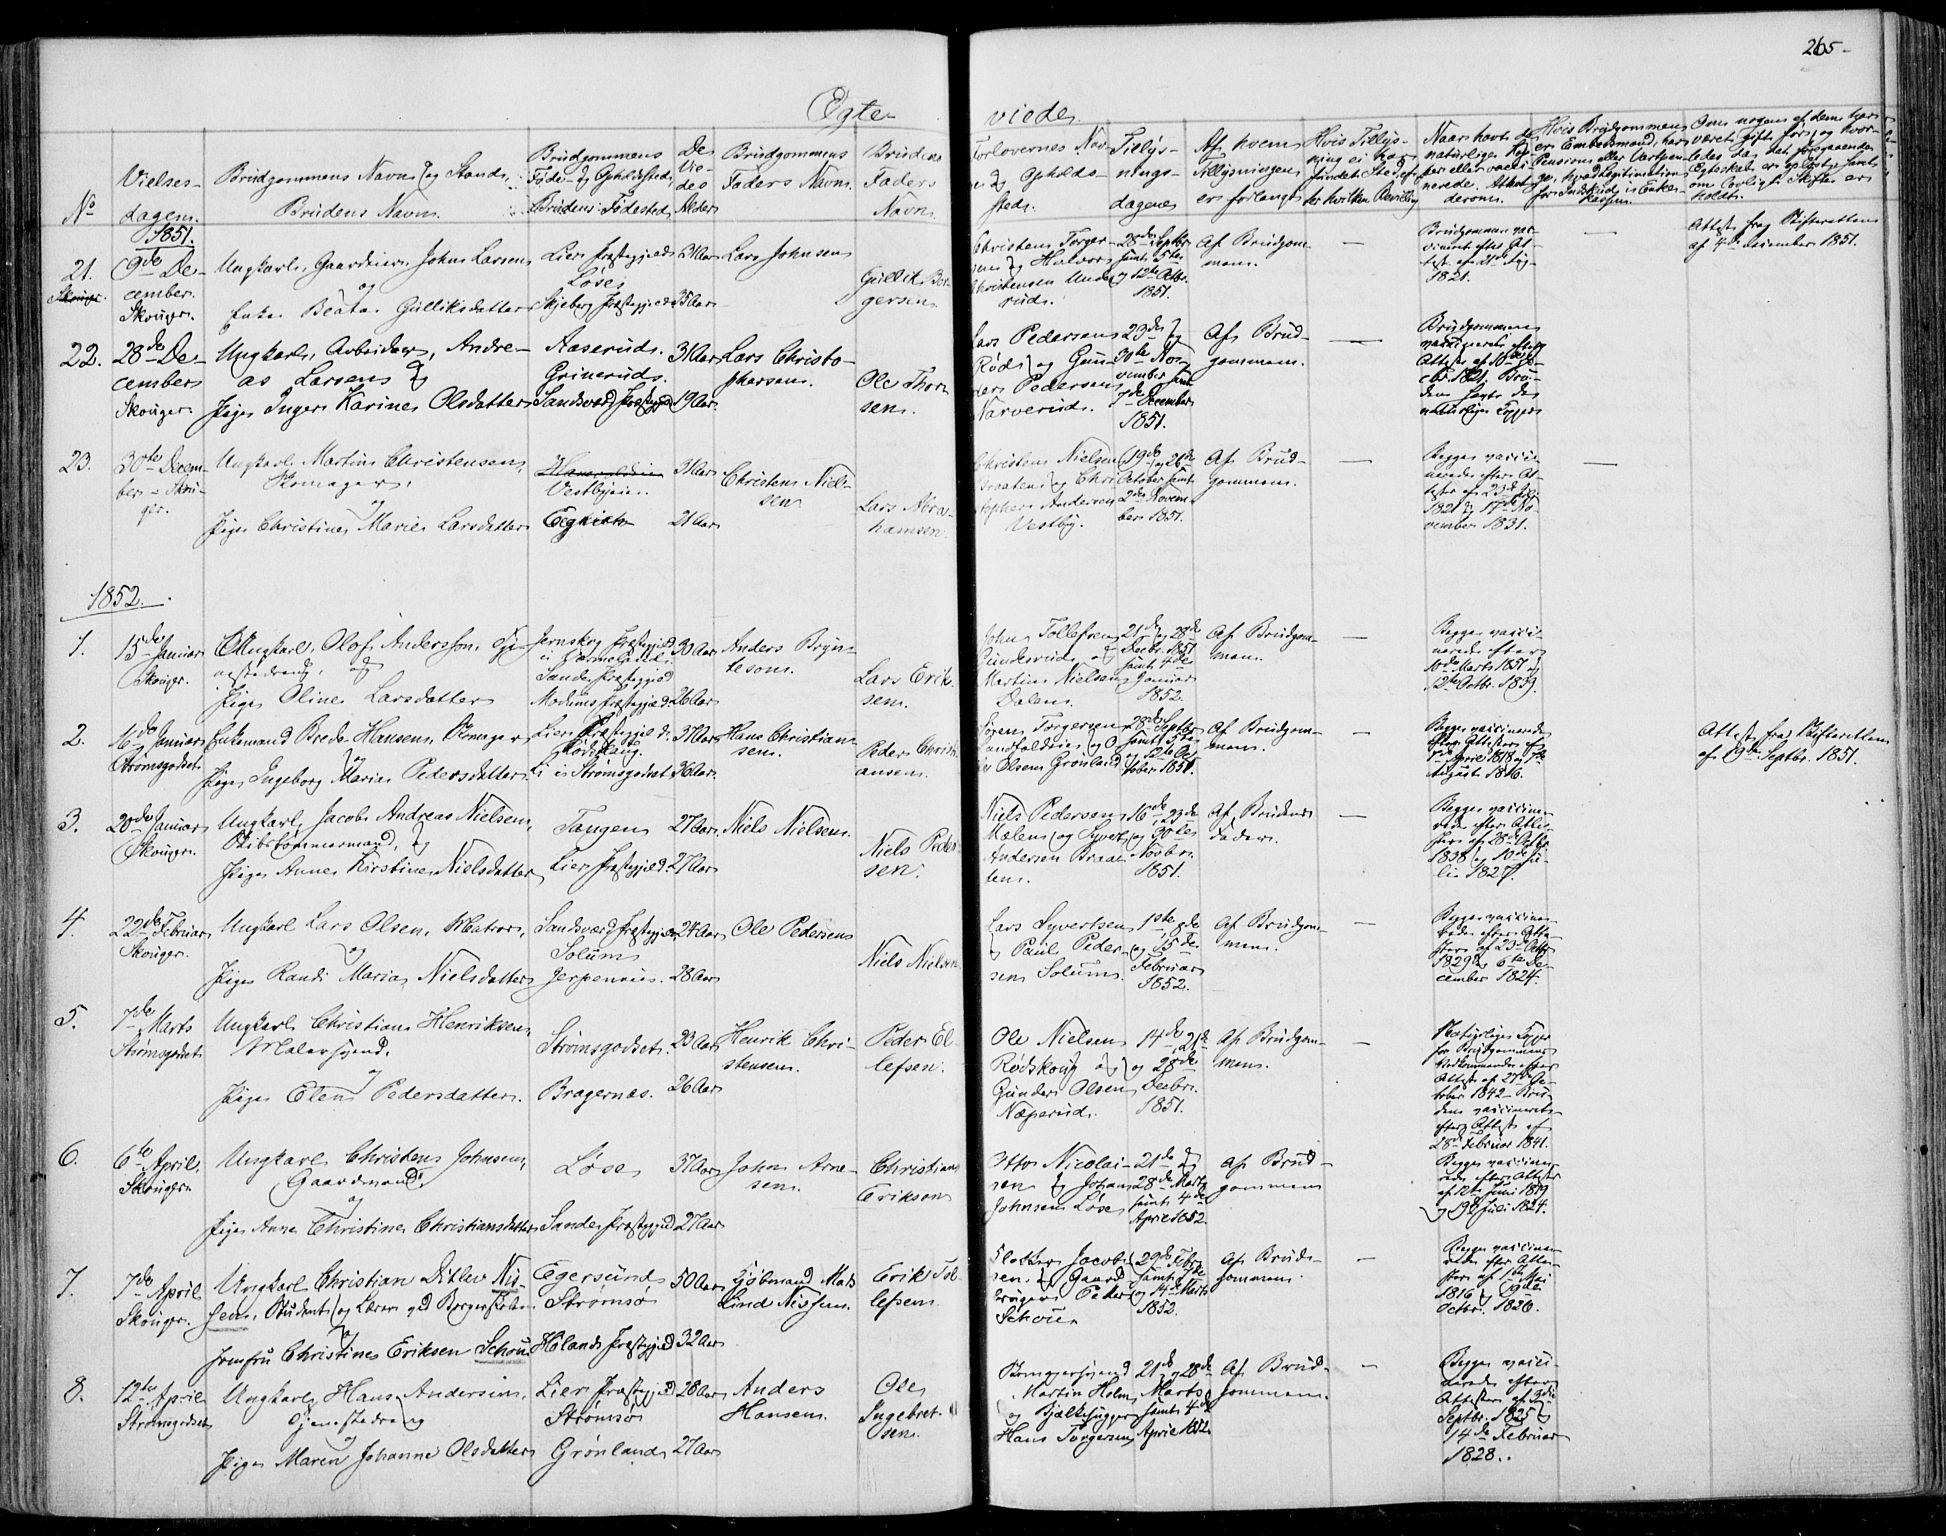 265-
Egte-
viede.
No
Vielses-
dagen.
Brudgommens Navn og Stand.
Brudens Navn.
Brudgommens
Føde- og Opholdssted,
Brudens Fødested.
De
Vie-
des
Alder
Brudgommens
Faders Navn.
Brudens
Faders
Navn.
Forlovernes Nav-
ne og Opholds-
sted.
Tillys-
nings-
dagene
Af hvem
Tillysningen
er forlangt
1851.
21.
9de De-
cember.
Skouger.
Ungkarl, Gaardeier John Larsen
og
Enke Beata Gulliksdatter
Lier Præstegjeld
Løse
Skjeberg Præstegjeld
35 Aar
Lars Johnsen
Gullik Bør-
gersen
Christen Torger-
sen og Halvor
Christensen Unde-
rud.
28de Septbr
samt 5te
og 12te Octbr.
1851.
Af Brudgom-
men.
—
Brudgommen vac-
cineret efter At-
test af 21de
1821.
—
Attest fra Skifteretten
af 4de December 1851.
22.
28de De-
cember
Skouger.
Ungkarl, Arbeider, Andre-
as Larsen og
Pige Inger Karine Olsdatter
Aaserud.
Grinerud.
Sandsværd Præstegjeld
31 Aar
19 Aar.
Lars Christo-
phersen.
Ole Thor-
sen.
Lars Pedersen
Røds og Gun-
der Pedersen
Narverud.
23de og
30te No-
vember samt
7de December
1851.
Af Brud-
gommen.
—
Brudgommen
vaccineret efter
Attest af 10de
1821. Bru-
den havt de
naturlige Kopper
23.
30te Decem-
ber - Skou-
ger.
Ungkarl Martin Christensen,
Skomager,
og
Pige Christine Marie Larsdatter
Vestbyeie.
Eqkisto
31 Aar
21 Aar
Christen Niel-
sen
Lars Abra-
hamsen.
Christen Nielsen
Braaten og Chri-
stopher Andersen
Vestby.
19de og 26de
October samt
2den Novem-
ber 1851.
Af Brud-
gommen.
—
Begge vacci-
nerede efter At-
tester af 23de
1821 og 17de No-
vember 1831.
—
1852.
1.
15de Januar
Skouger.
Ungkarl, Olof Andersson, Eje-
nestedreng, og
Pige Oline Larsdatter
Jernskog Præstegjeld
i Vermeland.
Sande Præstegjeld
Modums Præstegjeld.
30 Aar
26 Aar
Anders Bryn-
teson.
Lars Erik-
sen.
John Tollefsen
Gunderud og
Martin Nielsen
Dalen.
21de og 28de
Decbr. 1851
samt 4de
Januar
1852.
Af Brudgom-
men.
—
Begge vacci-
nerede efter
10de Marts 1851 og
12te Octbr. 1839.
2.
16de Januar
Strømsgodset.
Enkemand Brede Hansen, Skomager
og
Pige Ingeborg Marie Pedersdatter
Lier Præstegjeld.
Rødskoug.
Li i Strømsgodset
37 Aar
36 Aar.
Hans Christian-
sen.
Peder Christi-
ansen.
Søren Torgersen
Landfaldeie og O-
le Olsen Grønland
28de Septbr
samt 5te
12te Oc-
tober 1851.
Af Brudgom-
men.
—
Begge vaccinerede
efter Attester af
1ste April 1818 og 7de
August 1816.
Attest fra Skifteretten
af 19de Septbr. 1851.
3.
28de Januar
Skouger.
Ungkarl Jacob Andreas Nielsen,
Skibstømmermand, og
Pige Anne Kirstine Nielsdatter
Tangen
Lier Præstegjeld.
27 Aar.
27 Aar
Niels Nielsen.
Niels Peder-
sen.
Niels Pedersen
Mælen og Syvert
Andersen Braa-
ten.
16de, 23de
og 30te
Novbr.
1851.
Af Brudens
Fader.
—
Begge vaccine-
rede efter Atte-
ster af 28de Octbr
1838 og 10de Ju-
li 1827.
4.
22de Februar
Skouger.
Ungkarl Lars Olsen, Matros,
og
Pige Randi Maria Nielsdatter
Sandsværd Præstegjeld
Solum
Jerpenæs.
24 Aar
28 Aar
Ole Pedersen
Niels Nielsen
Lars Syvertsen
og Paul Peder-
sen Solum.
1ste, 8de
og 15de
Februar
1852.
Af Brudgom-
men.
—
Begge vaccine-
rede efter Atte-
ster af 23de Octbr
1829 og 6te De-
cember 1824.
5.
7de Marts
Strømsgodset
Ungkarl Christian Henriksen,
Malersvend.
og
Pige Elen Pedersdatter.
Strømsgodset
Bragernæs.
23 Aar
26 Aar
Henrik Chri-
stensen.
Peder El-
lefsen.
Ole Nielsen
Rødskoug og
Gunder Olsen
Næperud.
14de, 21de
og 28de
Decbr.
1851.
Af Brudgom-
men.
—
Naturlige Kopper
for Brudgommens
Vedkommende efter
Attest af 27de Oc-
tober 1842 - Bru-
dens vaccineret
efter Attest af
28de Februar 1841.
6.
6te April.
Skouger.
Ungkarl Christen Johnsen,
Gaardmand,
og
Pige Anne Christine Christiansdatter
Løse
Sande Præstegjeld
37 Aar
27 Aar
John Arne-
sen.
Christian
Erikson
Otto Nicolai-
sen og Johan
Johnsen Løse
21de og
28de Marts
samt 4de
April 1852.
Af Brud-
gommen
—
Begge vaccine-
rede efter Attester
af 12te Juni 1819
og 19de Juli 1824.
7.
7de April
Skouger.
Ungkarl Christian Ditlev Nis-
sen, Student og Lærer ved Borgerskolen
og
Jomfru Christine Eriksen Schou
Egersund
Strømsø
Hølands Præstegjeld
50 Aar
32 Aar
Kjøbmand Mads
Lund Nissen.
Erik Tol-
lefsen.
Jacob-
sen og Gaard-
bruger Peder
Schou
29de Febr
samt 7de
og 14de Marts
1852.
Af Brud-
gommen.
—
Begge vaccine-
rede efter Atte-
ster af 1ste Mai
1816 og 9de
Octbr. 1826.
8.
12te April
Strømsgodset
Ungkarl Hans Andersen,
Tjenestedreng
og
Pige Maren Johanne Olsdatter
Lier Præstegjeld
Strømsø
Grønland
28 Aar
27 Aar
Anders
Hansen.
Ole
Ingebret-
sen.
Martin Holm
og Bjælkehugger
Hans Torgersen
21de og 28de
Marts
samt 4de
April 1852.
Af Brud-
gommen.
—
Begge vacci-
nerede efter
Attester af 3die
Septbr. 1825 og
14de Februar
1828.